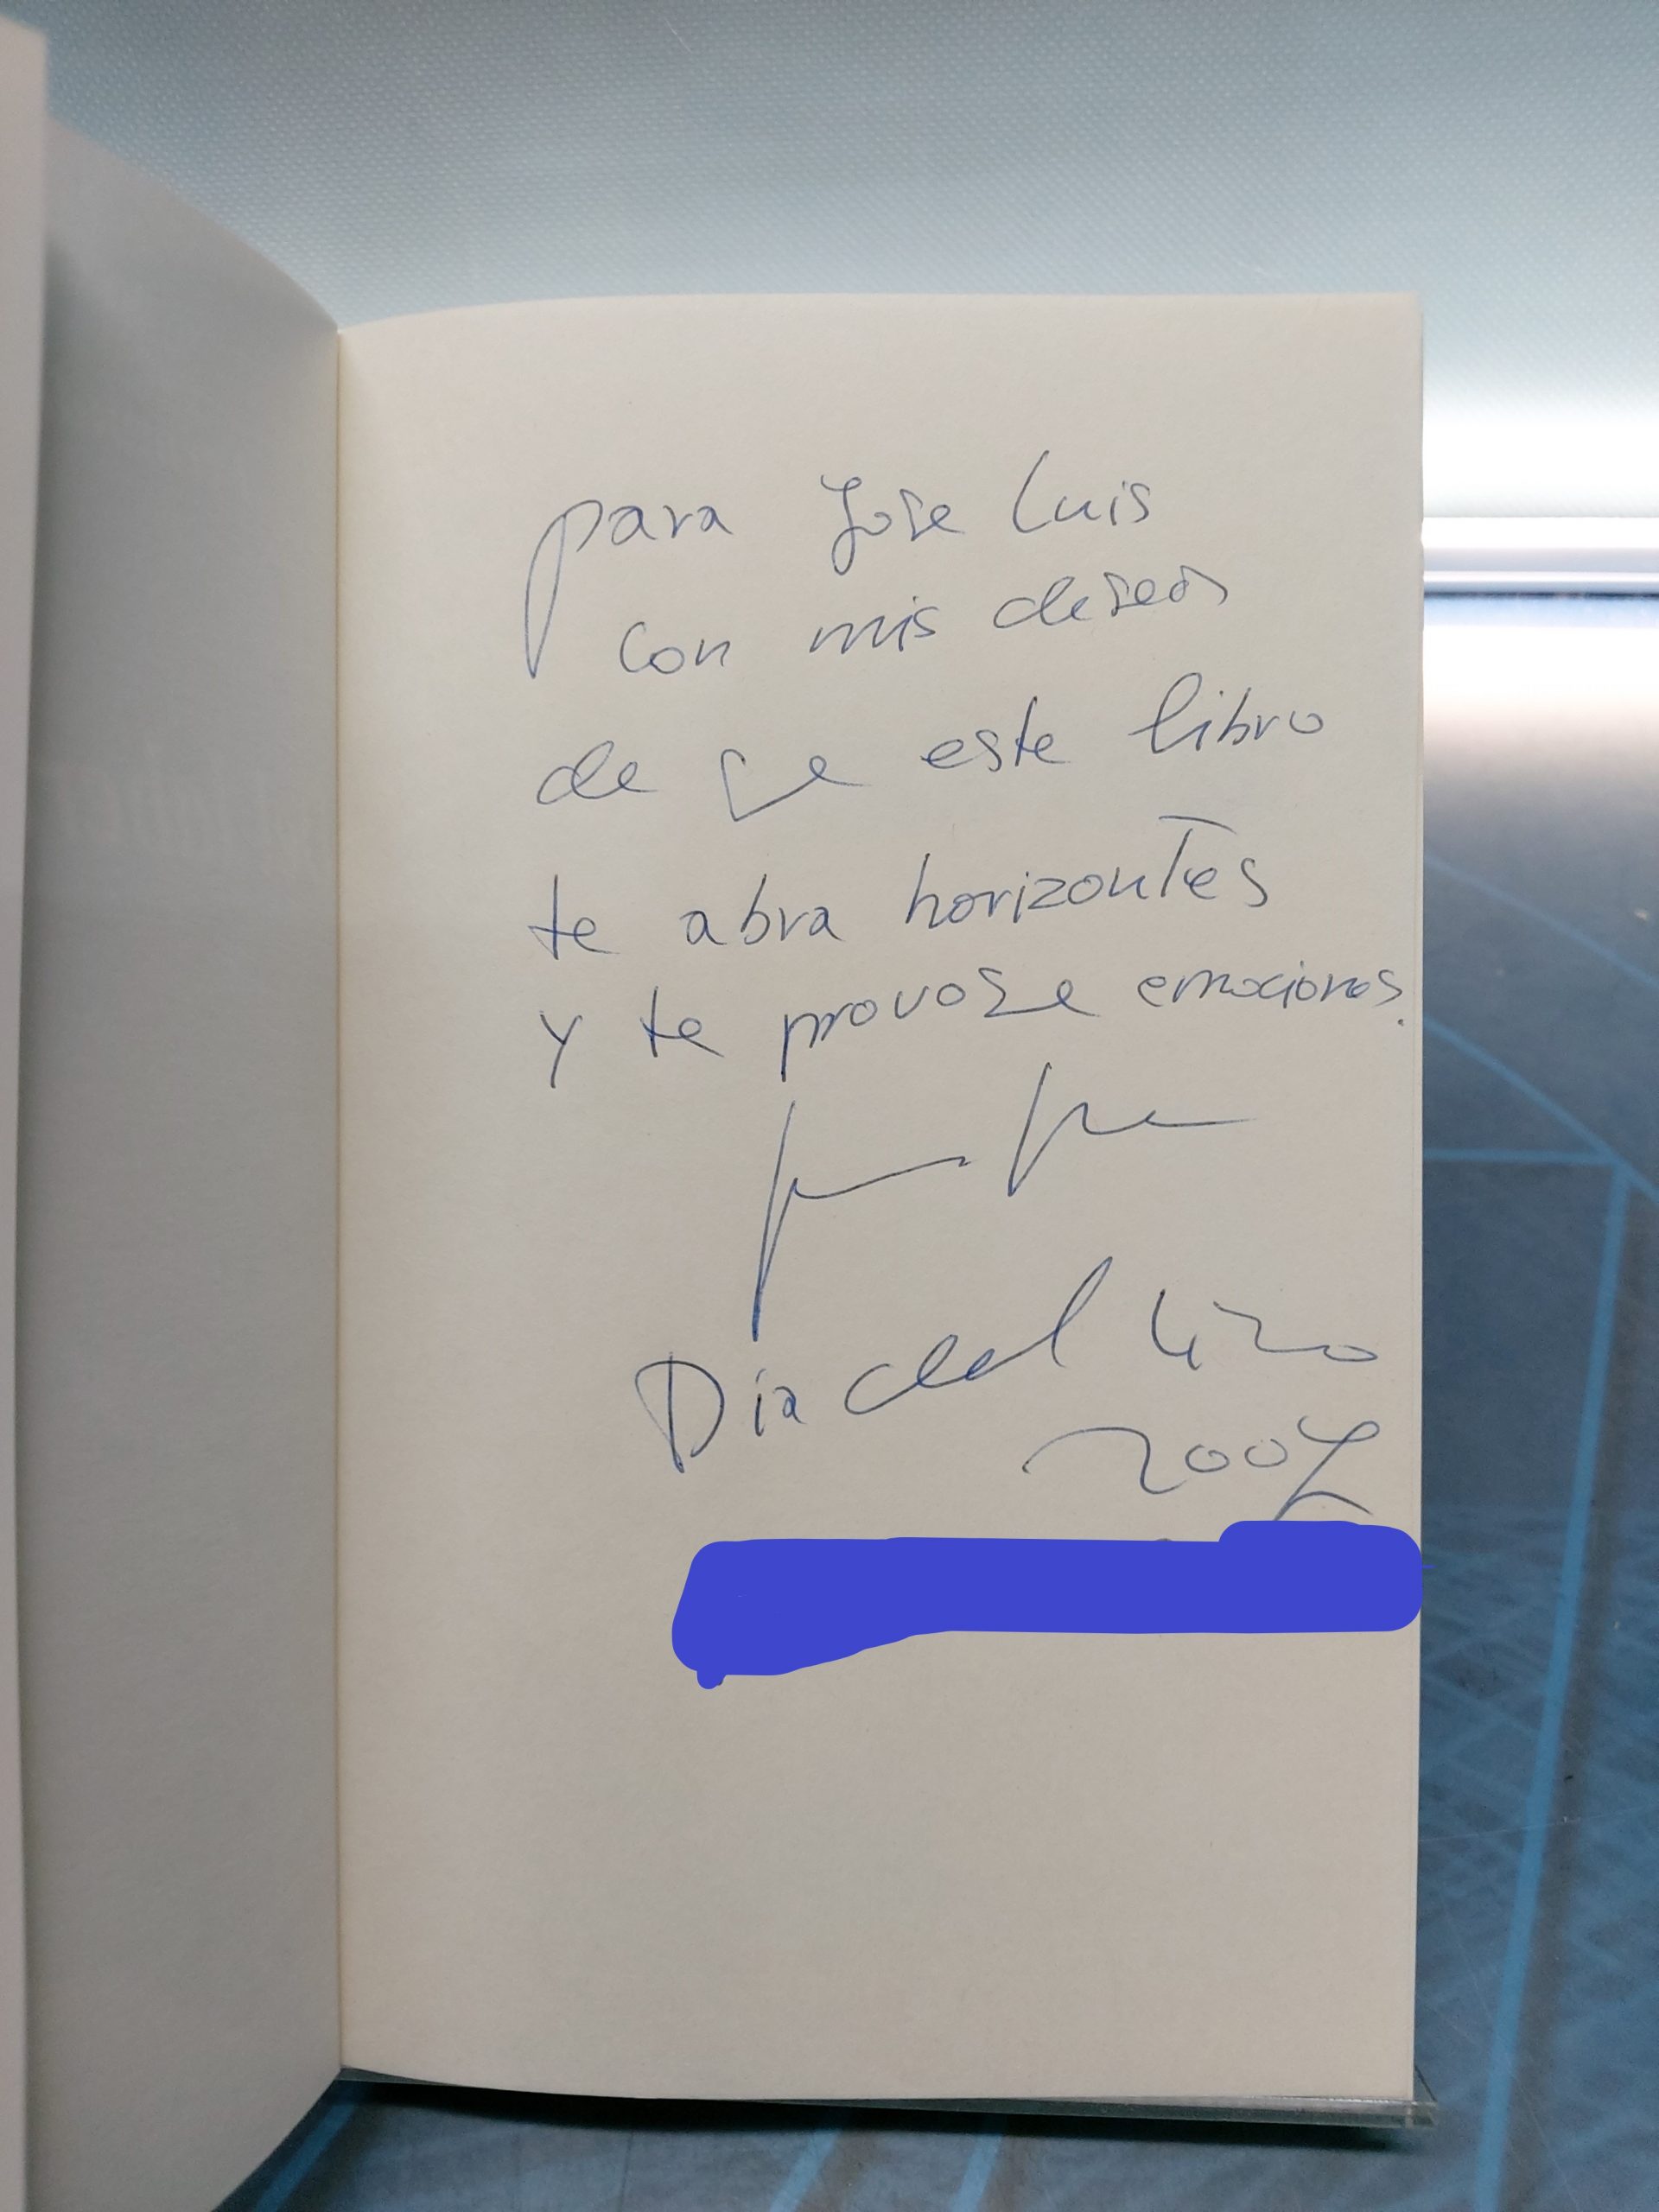 para Jose Luis
con mis deseos
de que este libro
te abra horizontes
y te provoque emociones.
Dia del libro
2007